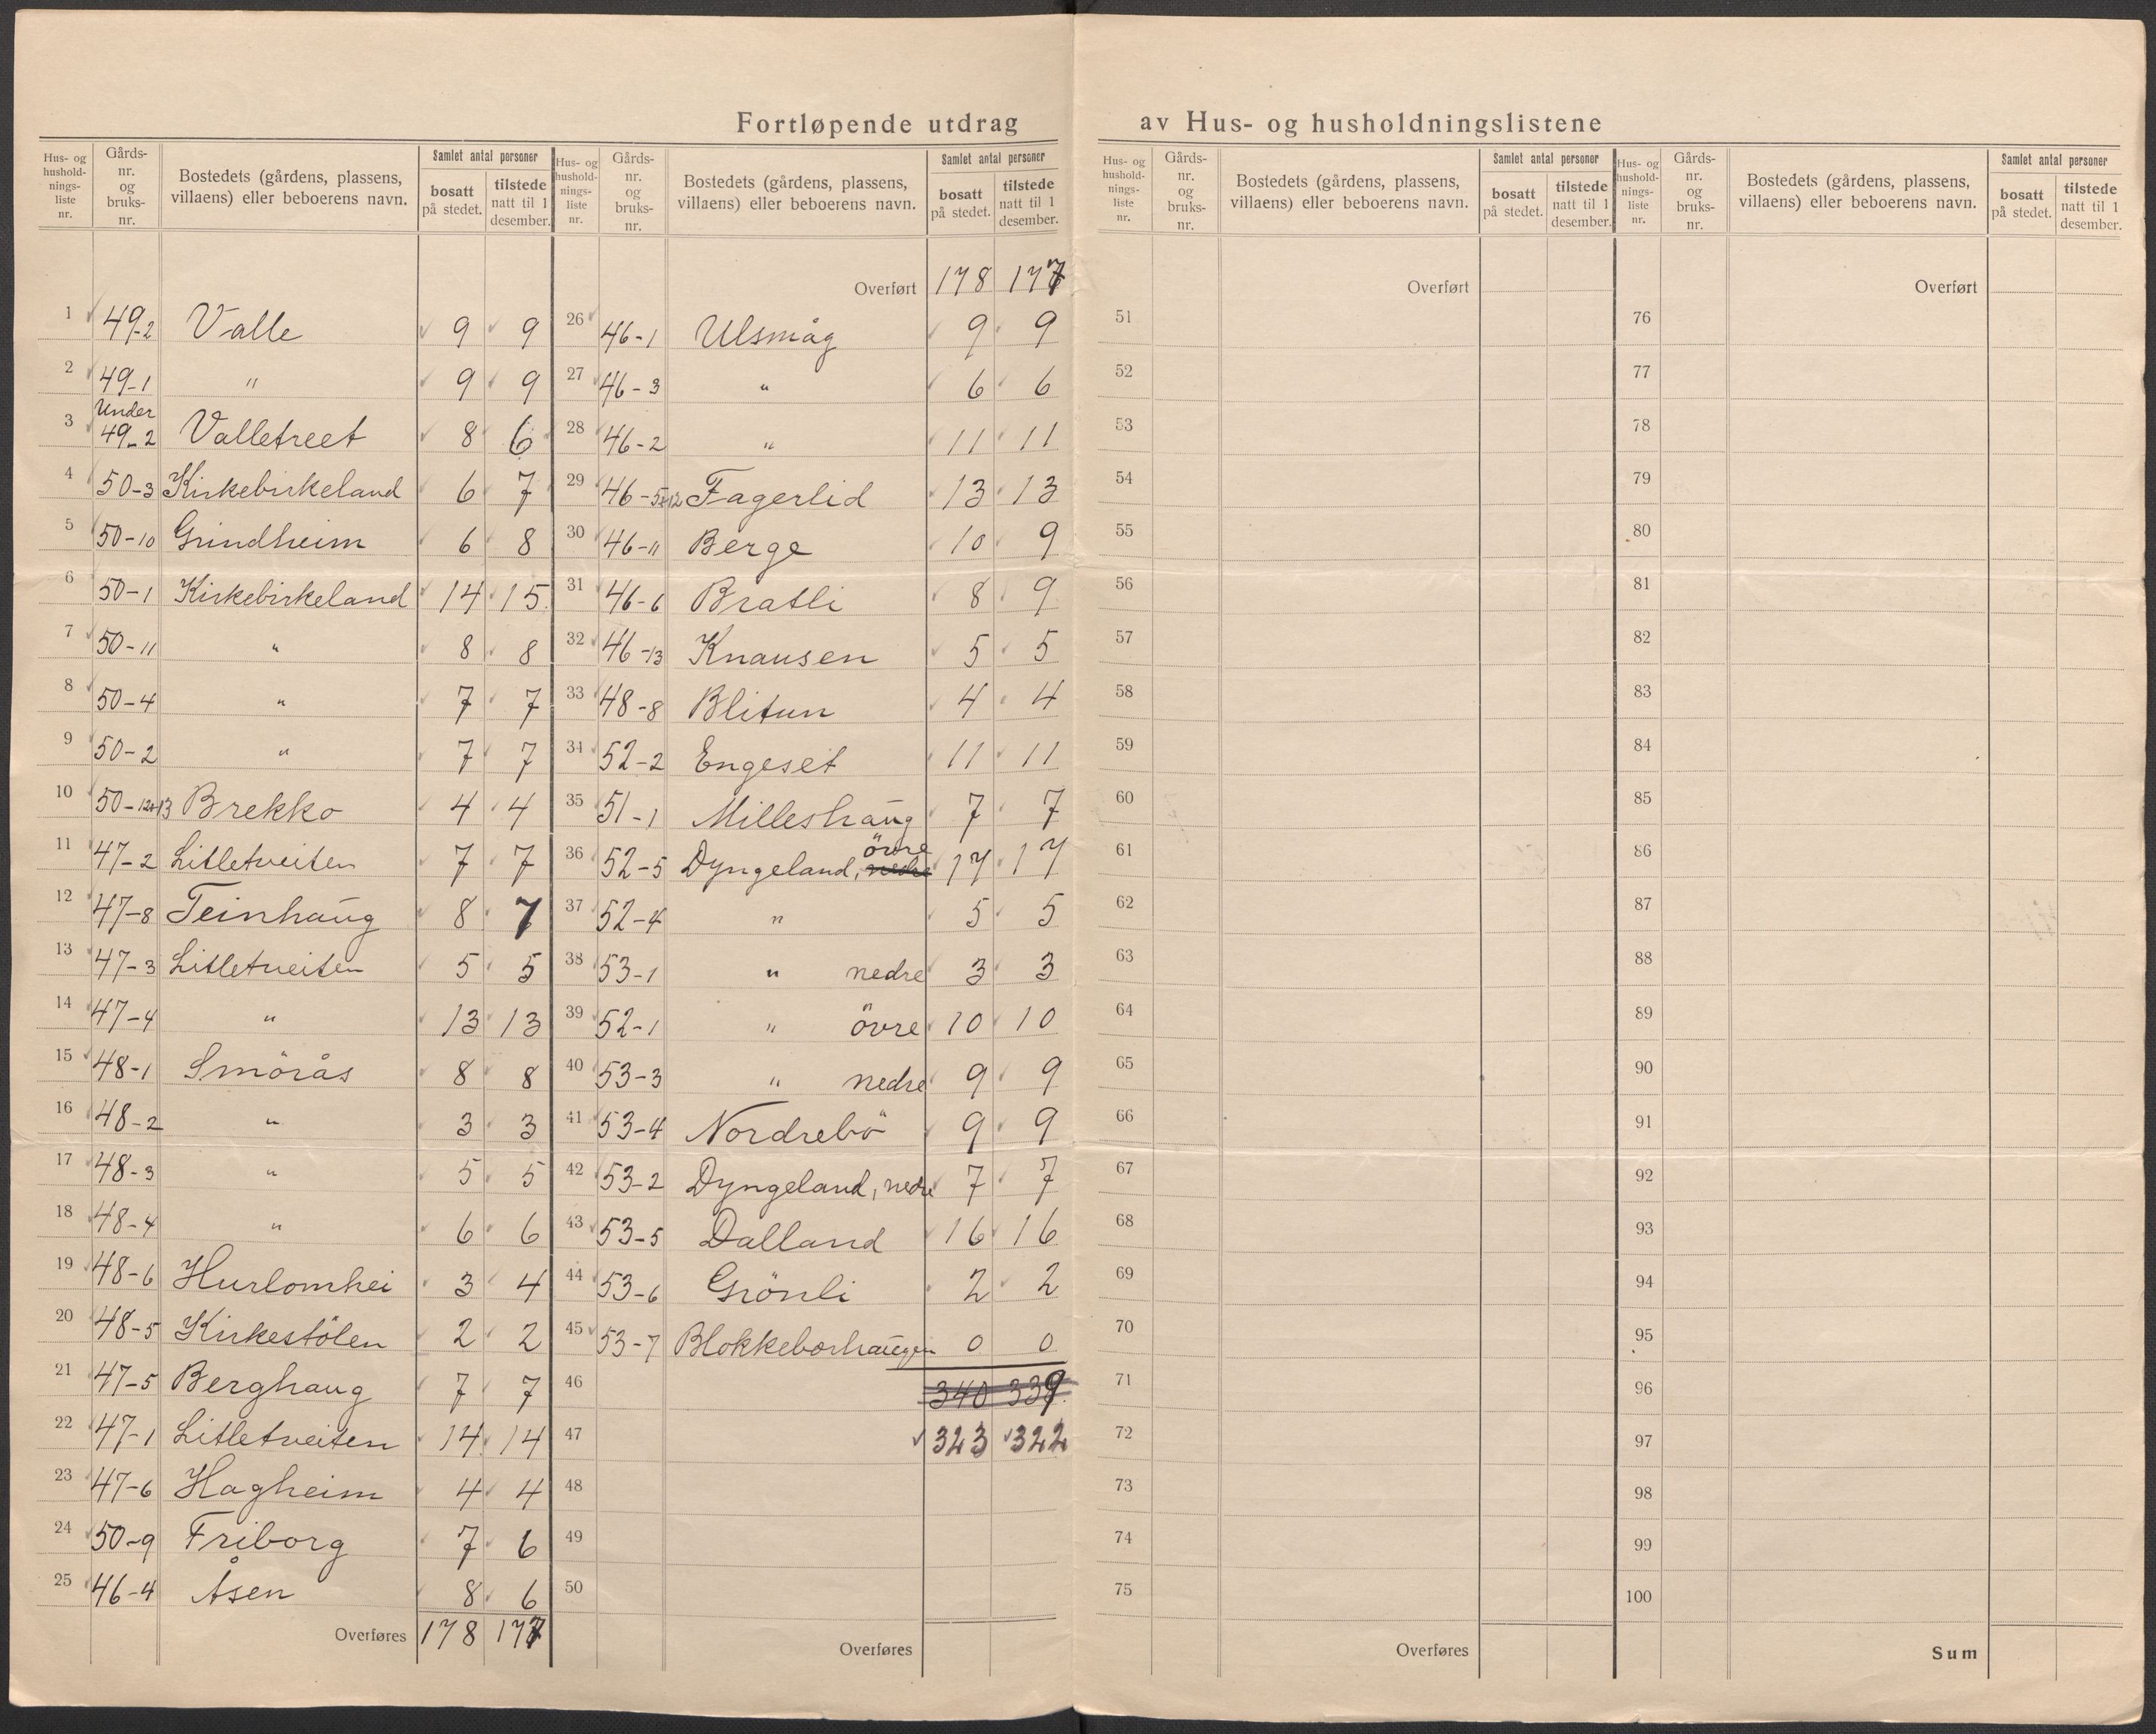 Fortløpende utdrag av Hus- og husholdningslistene
Hus- og husholdningsliste nr. Gårdsnr. og bruksnr. Bostedets (gårdens, plassens, villaens) eller beboerens navn. Samlet antal personer bosatt på stedet. tilstede natt til 1 desember.
1 49-2 Valle 9 9
2 49-1 " 9 9
3 Under 49-2 Valletreet 8 6
4 50-3 Kirkebirkeland 6 7
5 50-10 Grindheim 6 8
6 50-1 Kirkebirkeland 14 15
7 50-11 " 8 8
8 50-4 " 7 7
9 50-2 " 7 7
10 50-12+13 Brekko 4 4
11 47-2 Litletveiten 7 7
12 47-8 Teinhaug 8 7
13 47-3 Litletveiten 5 5
14 47-4 " 13 13
15 48-1 Smörås 8 8
16 48-2 " 3 3
17 48-3 " 5 5
18 48-4 " 6 6
19 48-6 Hurlomhei 3 4
20 48-5 Kirkestölen 2 2
21 47-5 Berghaug 7 7
22 47-1 Litletveiten 14 14
23 47-6 Hagheim 4 4
24 50-9 Friborg 7 6
25 46-4 Åsen 8 6
Overføres 178 177
Hus- og husholdningsliste nr. Gårdsnr. og bruksnr. Bostedets (gårdens, plassens, villaens) eller beboerens navn. Samlet antal personer bosatt på stedet. tilstede natt til 1 desember.
Overført 178 177
26 46-1 Ulsmåg 9 9
27 46-3 " 6 6
28 46-2 " 11 11
29 46-5+12 Fagerlid 13 13
30 46-11 Berge 10 9
31 46-6 Bratli 8 9
32 46-13 Knausen 5 5
33 48-8 Blitun 4 4
34 52-2 Engeset 11 11
35 51-1 Milleshaug 7 7
36 52-5 Dyngeland, nedre övre 17 17
37 52-4 " 5 5
38 53-1 " nedre 3 3
39 52-1 " övre 10 10
40 53-3 " nedre 9 9
41 53-4 Nordrebö 9 9
42 53-2 Dyngeland, nedre 7 7
43 53-5 Dalland 16 16
44 53-6 Grönli 2 2
45 53-7 Blokkeborhaugen 0 0
46 340 339
47 323 322
48
49
50
Overføres
Hus- og husholdningsliste nr. Gårdsnr. og bruksnr. Bostedets (gårdens, plassens, villaens) eller beboerens navn. Samlet antal personer bosatt på stedet. tilstede natt til 1 desember.
Overført
51
52
53
54
55
56
57
58
59
60
61
62
63
64
65
66
67
68
69
70
71
72
73
74
75
Overføres
Hus- og husholdningsliste nr. Gårdsnr. og bruksnr. Bostedets (gårdens, plassens, villaens) eller beboerens navn. Samlet antal personer bosatt på stedet. tilstede natt til 1 desember.
Overført
76
77
78
79
80
81
82
83
84
85
86
87
88
89
90
91
92
93
94
95
96
97
98
99
100
Sum